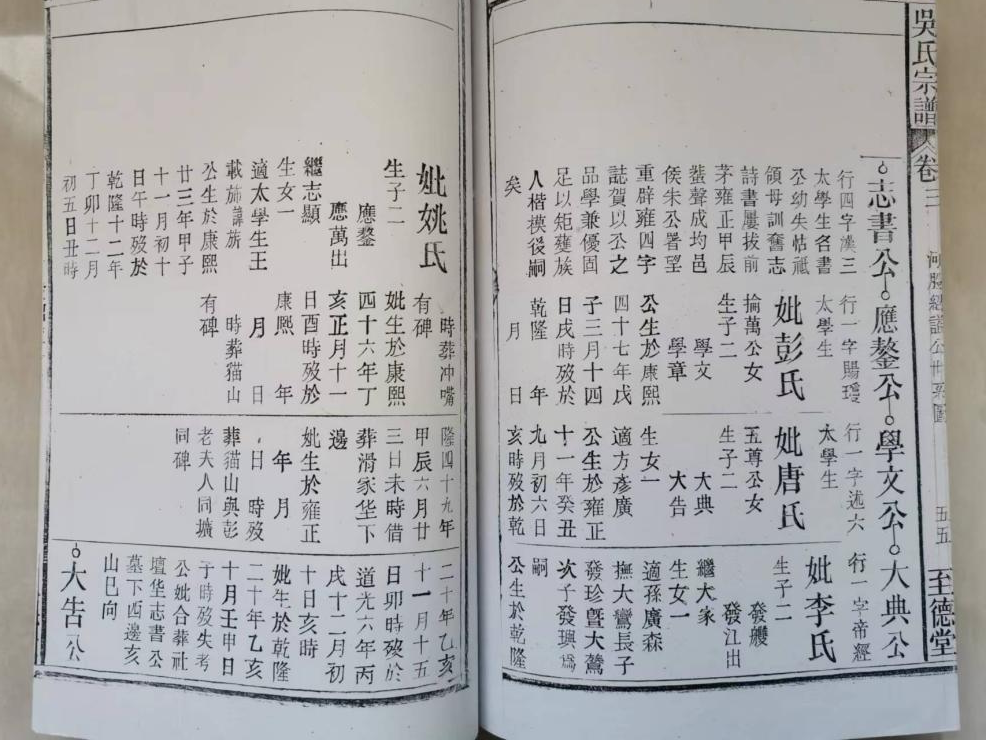 吳氏宗譜 卷三 五五 至德堂
志書公 應鏊公 學文公 大典公
行四字漢三
太學生名書
公幼失怙祗
領母訓奮志
詩書屢拔前
茅雍正甲辰
蜚聲成均邑
侯朱公署望
重辟雍四字
誌賀以丕之
品學兼優固
足以矩蠖族
人楷模後嗣
矣
行一字賜
太學生
妣彭氏
掄萬公女
生子二
學文
學章
公生於康熙
四十七年戊
子三月十四
日戌時歿於
乾隆 年
月 日
行一字述六
太學生
妣唐氏
五尊公女
生子二
大典
大告
生女一
適方彥廣
公生於雍正
十一年癸丑
九月初六日
亥時歿於乾
行一字帝經
妣李氏
生子二
發艭
發江出
繼大家
生女一
適孫廣森
撫大鸞長子
發珍暨大鶿
次子發璵為
嗣
公生於乾隆
妣姚氏
生子二
應鏊
應萬出
繼志顯
生女一
適太學生王
載
公生於康熙
廿三年甲子
十一月初十
日午時歿於
乾隆十二年
丁卯十二月
初五日丑時
時葬冲嘴
有碑
妣生於康熙
四十六年丁
亥正月十一
日酉時歿於
康熙 年
月 日
時葬貓山
有碑
隆四十九年
甲辰六月廿
三日未時借
葬滑家华下
邊
妣生於雍正
年 月
日 時歿
葬貓山與彭
老夫人同壙
同碑
二十年乙亥
十一月十五
日卯時歿於
道光六年丙
戌十二月初
十日亥時
妣生於乾隆
二十年乙亥
十月壬甲日
子時歿失考
公妣合葬社
壇华志書公
墓下西邊亥
山巳向
大告公